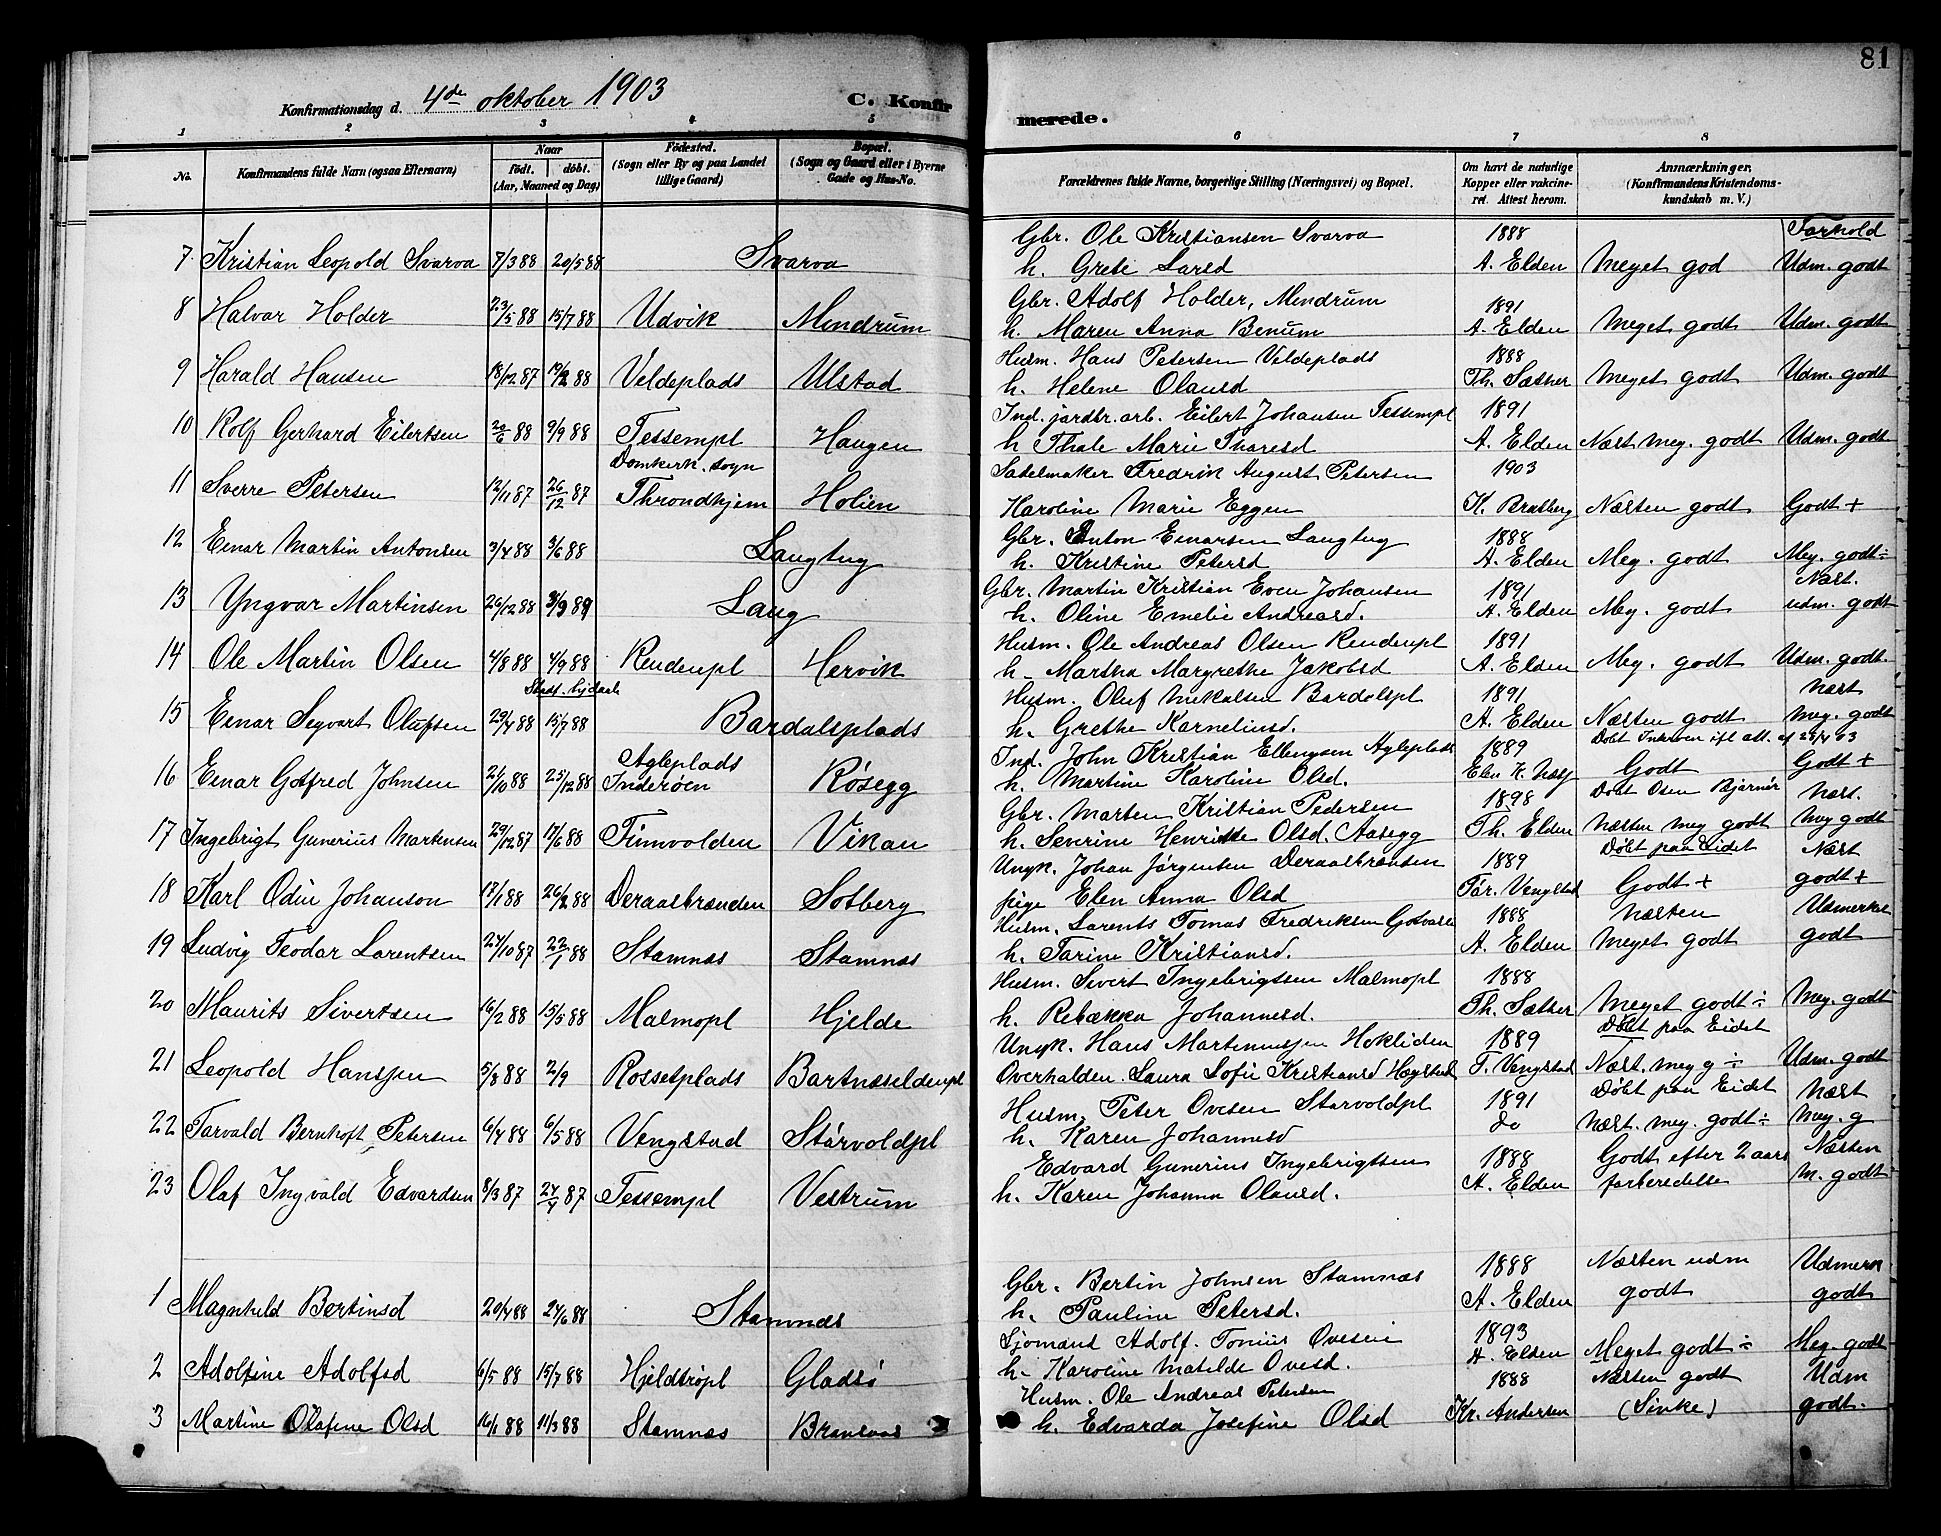 81
Konfirmationsdag d. 4de oktober 1903
C. Konfirmerede.
1 2 3 4 5 6 7 8
No. Konfirmandens fulde Navn (ogsaa Efternavn) Naar født. døbt. (Aar, Maaned og Dag) Fødested. (Sogn eller By og paa Landet tillige Gaard) Bopæl. (Sogn og Gaard eller i Byerne Gade og Hus-No. Forældrenes fulde Navne, borgerlige Stilling (Næringsvei) og Bopæl. Om havt de naturlige Kopper eller vakcineret. Attest herom. Anmærkninger. (Konfirmandens Kristendomskundskab m. V.)
Gbr. Ole Kristiansen Svarva 1888 Forhold
7. Kristian Leopold Svarva 7/3 88 20/5 88 Svarva h. Grete Larsd A. Elden Meget god Udm. godt
Gbr. Adolf Holder, Mendrum 1891
8 Halvar Holder 23/5 88 15/7 88 Udvik Mendrum h. Maren Anna Benum A. Elden Meget godt Udm. godt
Husm. Hans Petersen Veldeplads 1888
9 Harald Hansen 18/12 87 19/2 88 Veldeplads Ulstad h. Helene Olausd Th. Sæther Meget godt Udm. godt
Ind. jordbr. arb. Eilert Johansen Tessempl 1891
10 Rolf Gerhard Eilertsen 88 9/9 88 Tessempl Haugen h Thale Marie Tharesd A. Elden Næst. meg. godt Udm. godt
Domkerk. sogn Sadelmaker Fredrik August Petersen 1903
11 Sverre Petersen 12/11 87 26/12 87 Throndhjem Holien Karoline Marie Eggen K. Bratberg Næsten godt Godt +
Gbr. Anton Einarsen Langtug 1888
12 Einar Martin Antonsen 3/4 88 3/6 88 Langtug h. Kristine Petersd A. Elden Meg. godt Meg. godt ÷
Gbr. Martin Kristian Even Johansen 1891 Næst.
13 Yngvar Martinsen 26/12 88 3/3 89 Laug h. Oline Emelie Andreasd. A. Elden Meg. godt udm. godt
Husm. Ole Andreas Olsen Rendempl 1891
14 Ole Martin Olsen 4/8 88 4/9 88 Rendempl Hervik h. Martha Margrethe Jakobsd A. Elden Meg. godt Udm. godt.
Husm. Oluf Mikalsen Bardalspl 1891 næst
15 Einar Segvart Olufsen 29/4 88 15/7 88 Bardalsplads h. Grethe Korneliusd. A. Elden Næsten godt Meg. godt
Ind. John Kristian Ellengsen Agleplads 1889 Døbt Inderøen ifl att. af 24/4 03
16 Einar Gotfred Johnsen 2/10 88 25/12 88 Agleplads Inderøen Røsegg h. Martine Karoline Olsd. Elen K. Næss Godt Godt +
Gbr. Morten Kristian Pedersen 1898 Døbt Osen Bjørnør Næst.
17 Ingebrigt Gunerius Mortensen 29/12 87 17/6 88 Finnvolden Vikan h. Severine Henrikke Olsd. Aasegg Th. Elden Næsten meg godt Meg godt
Ungk. Johan Jørgensen Deraasbrænden 1889 Døbt paa Eidet Næst
18 Karl Odin Johanson 17/1 88 26/2 88 Deraasbrænden Solberg pige Elen Anna Olsd Tør. Vengstad Godt + godt +
Husm. Lorents Tomas Fredriksen Gotvasli 1888 Næsten Udmerket
19 Ludvig Teodor Lorentsen 24/10 87 22/1 88 Stamnæs Stamnæs h. Tarine Kristiansd. A. Elden Meget godt godt
Husm. Sivert Ingebrigtsen Malmopl 1888
20 Maurits Sivertsen 16/2 88 15/5 88 Malmopl Hjelde h. Rebækka Johannesd. Th. Sæther Meget godt ÷ Meg. godt
Ungk. Hans Martinussen Hokliden 1889 Døbt paa Eidet
21 Leopold Hanssen 5/8 88 2/9 Rolsetplads Bartnæseldenpl Overhalden. Laura Sofie Kristiansd Høgstad T. Vengstad Næst. meg g ÷ Udm. godt
Husm. Peter Ovesen Starvoldpl 1891 Døbt paa Eidet Næst
22 Torvald Bernhoft Petersen 6/4 88 6/5 88 Vengstad Størvoldpl h. Karen Johannesd do Næst. meg. godt ÷ Meg. g
Edvard Gunerius Ingebrigtsen 1888 Godt efter 2 aars Næsten
23 Olaf Ingvald Edvardsen 8/3 87 24/4 87 Tessempl Vestrum h. Karen Johanna Olausd. A. Elden forberedelse M. godt
Gbr. Bertin Johnsen Stamnæs 1888 Næsten udm Udmerk
1 Magnhild Bertinsd 20/4 88 24/6 88 Stamnæs h. Pauline Petersd. A. Elden godt godt
Sjømand Adolf Tonius Ovesen 1893
2 Adolfine Adolfsd 6/5 88 15/7 88 Hjeldsøpl Gladsø h. Karoline Matilde Ovesd. A. Elden Meget godt ÷ Meg. godt
Husm. Ole Andreas Petersen 1888 Næsten godt Udm
3 Martine Olafine Olsd 16/1 88 11/3 88 Stamnæs h. Edvarda Josefine Olsd Kr. Andersen (Sinke) godt.